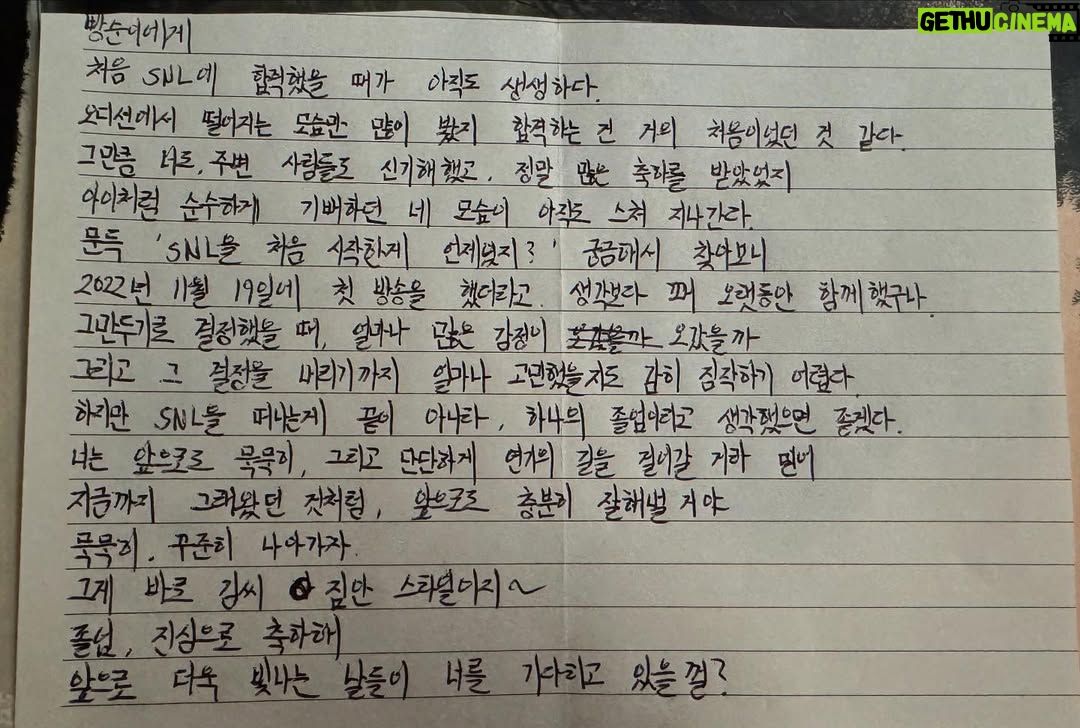 GETHUCINEMA
빵순이에게
처음 SNL에 합격했을 때가 아직도 생생하다.
오디션에서 떨어지는 모습만 많이 봤지 합격하는 건 거의 처음이었던 것 같다.
그만큼 너도, 주변 사람들도 신기해했고, 정말 많은 축하를 받았었지
아이처럼 순수하게 기뻐하던 네 모습이 아직도 스쳐 지나간다.
문득 'SNL을 처음 시작한게 언제였지?' 궁금해서 찾아보니
2022년 11월 19일에 첫 방송을 했더라고. 생각보다 꽤 오랫동안 함께했구나.
그만두기로 결정했을 때, 얼마나 많은 감정이 오갔을까
그리고 그 결정을 내리기까지 얼마나 고민했을지도 감히 짐작하기 어렵다.
하지만 SNL을 떠나는게 끝이 아니라, 하나의 졸업이라고 생각했으면 좋겠다.
너는 앞으로도 묵묵히, 그리고 단단하게 연기의 길을 걸어갈 거라 믿어
지금까지 그래왔던 것처럼, 앞으로도 충분히 잘해낼 거야
묵묵히, 꾸준히 나아가자.
그게 바로 김씨 집안 스타일이지~
졸업, 진심으로 축하해
앞으로 더욱 빛나는 날들이 너를 기다리고 있을껄?